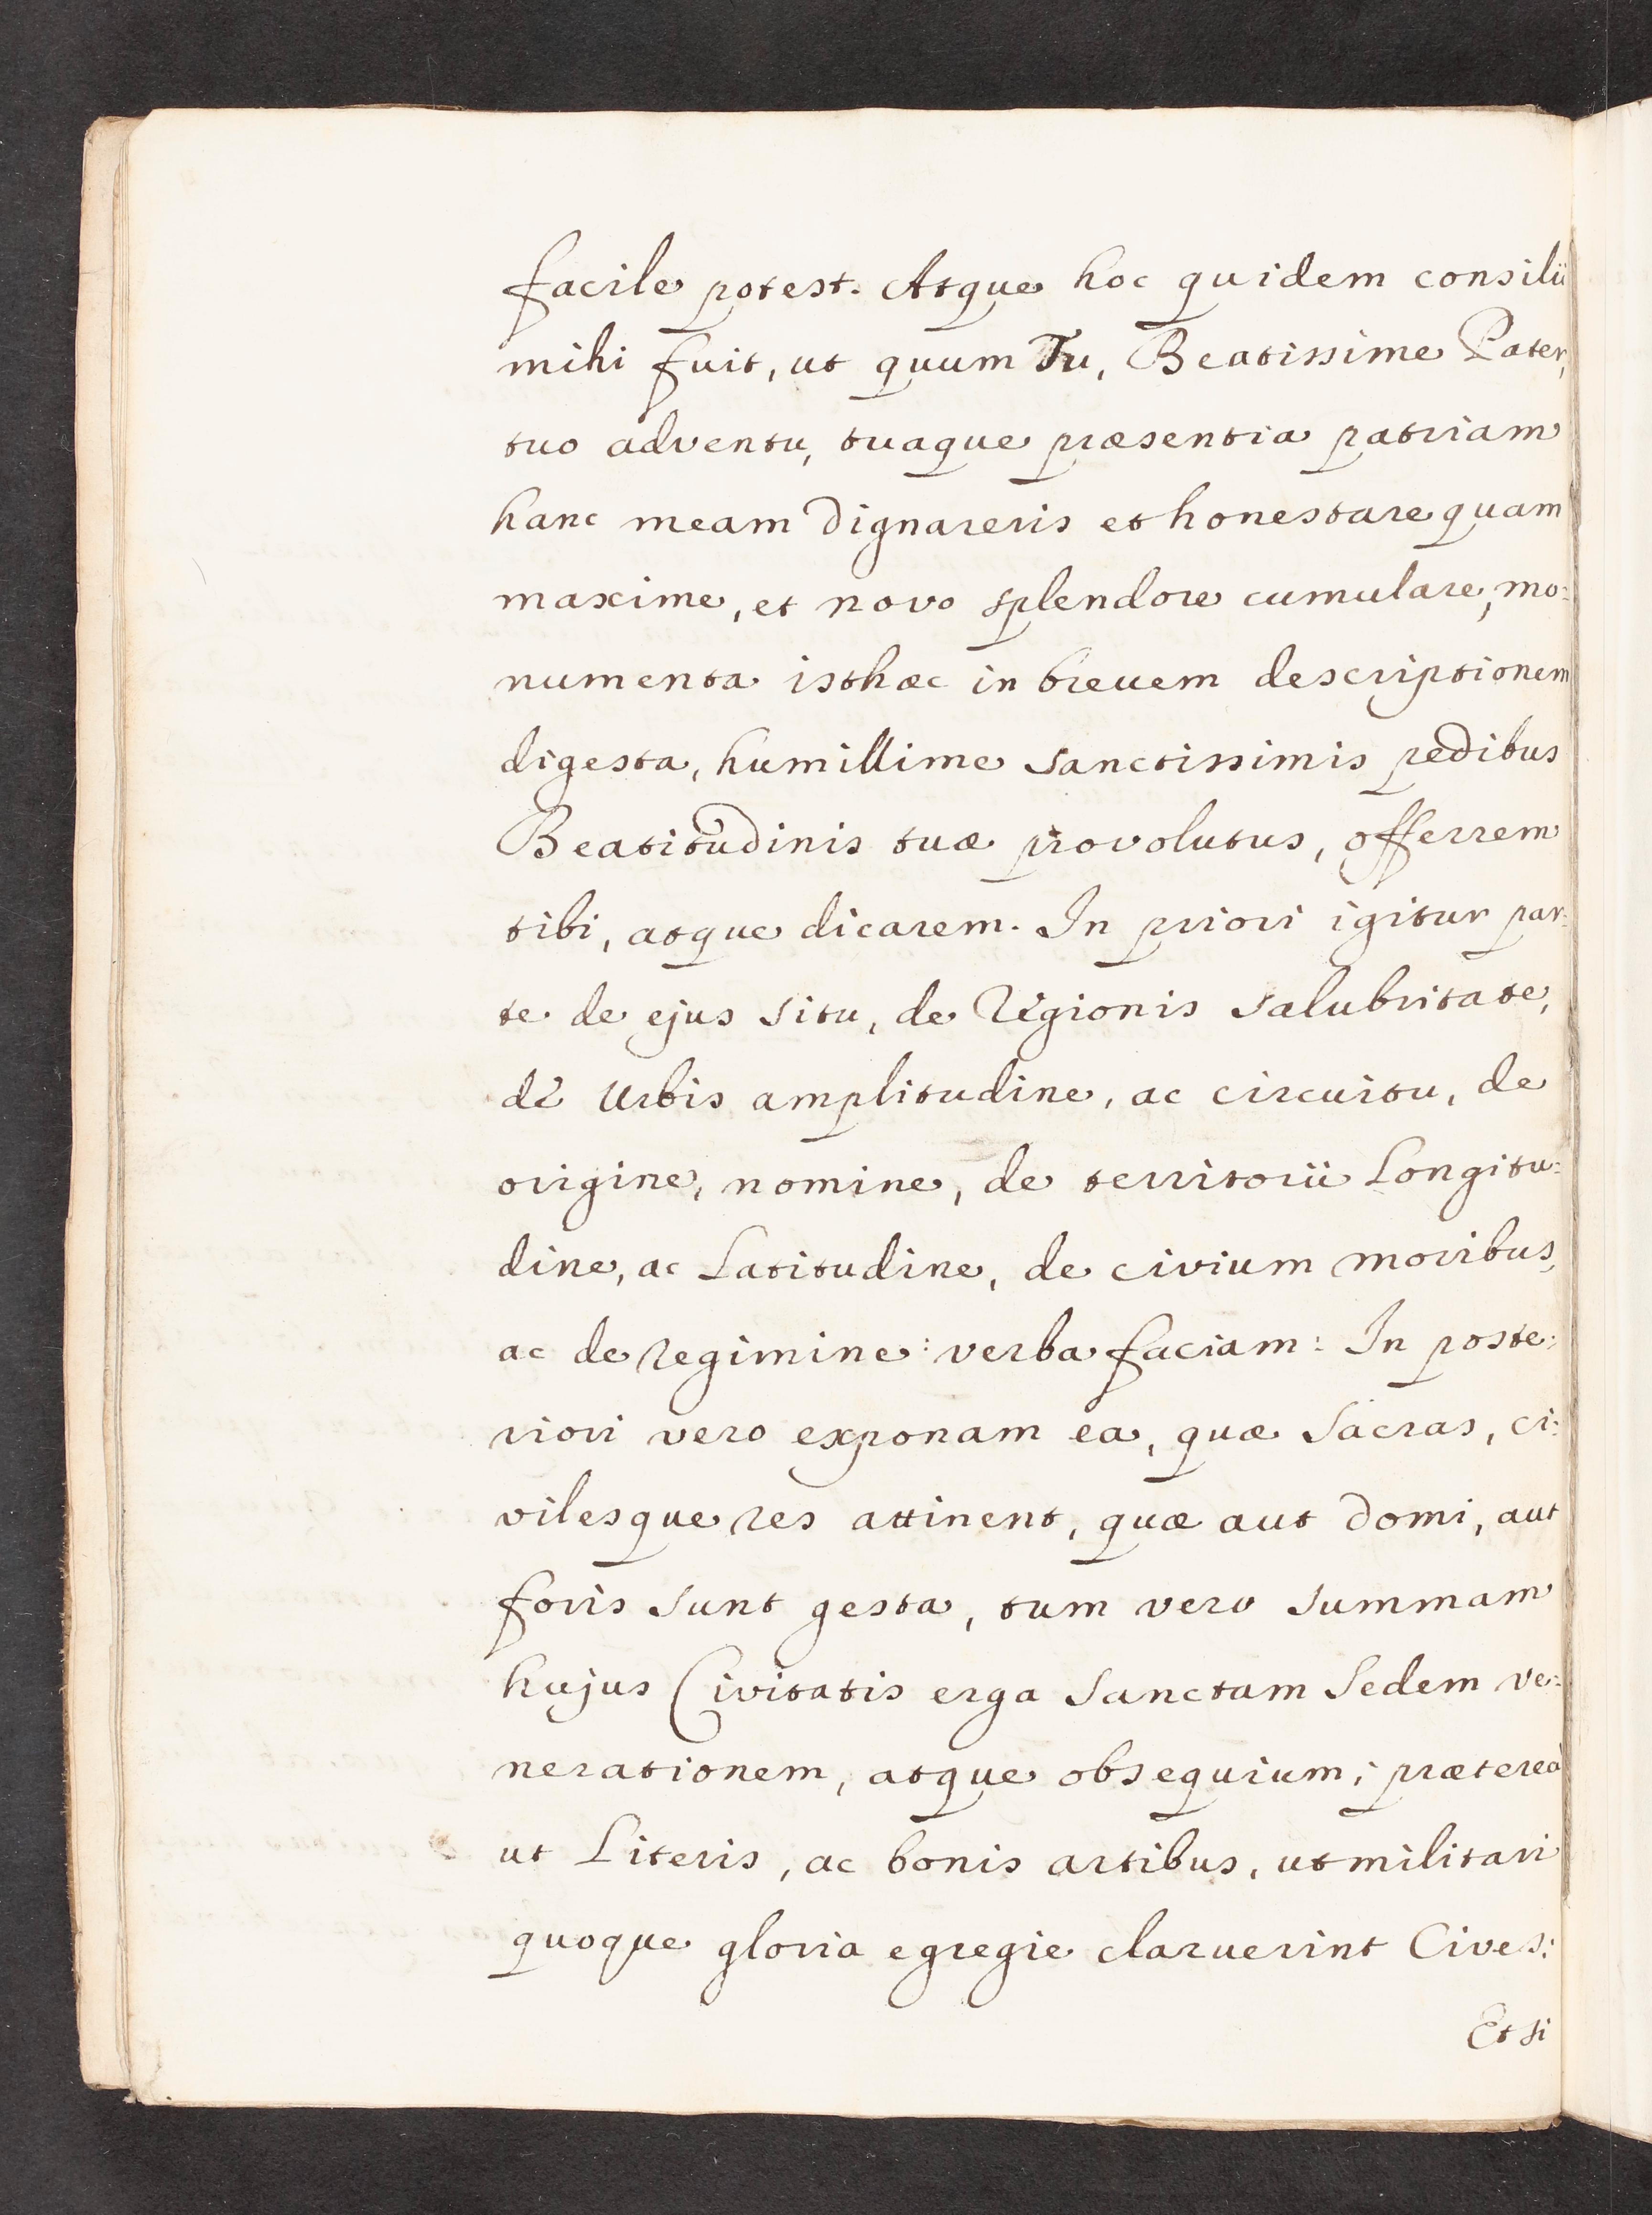 facile potest. Atque hoc quidem consilii
mihi fuit, ut quum Tu, Beatissime Pater,
tuo adventu, tuaque præsentia patriam
hanc meam dignareris et honestare quam
maxime, et novo splendore cumulare, mo:
numenta isthæc in breuem descriptionem
digesta, humillime sanctissimis pedibus
Beatitudinis tuæ provolutus, offerrem
tibi, atque dicarem. In priori igitur par:
te de ejus situ, de Regionis salubritate,
de Urbis amplitudine, ac circuitu, de
origine, nomine, de territorii Longitu:
dine, ac Latitudine, de civium moribus,
ac de regimine: verba faciam: In poste:
riori vero exponam ea, quæ Sacras, ci:
vilesque res attinent, quæ aut domi, aut
foris sunt gesta, tum vero summam
hujus Civitatis erga Sanctam Sedem ve:
nerationem, atque obsequium; præterea
ut Literis, ac bonis artibus, ut militari
quoque gloria egregie claruerint Cives:
Et si